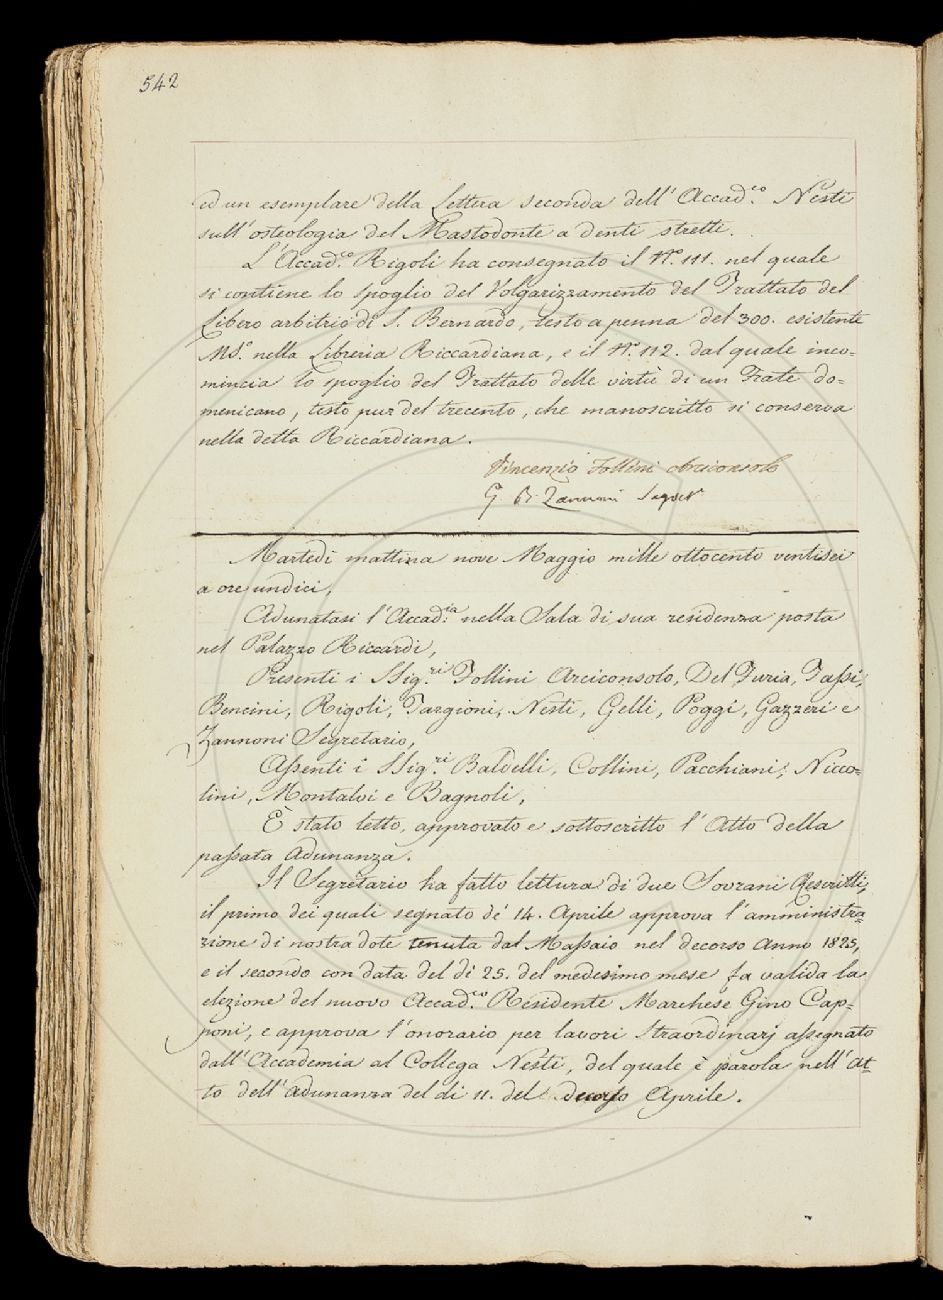 542
ed un esemplare della Lettera seconda dell'Accad.co Nesti
sull'osteologia del Mastodonte a denti stretti.
L'Accad.co Rigoli ha consegnato il N.o 111. nel quale
si contiene lo spoglio del Volgarizzamento del Trattato del
Libero arbitrio di S. Bernardo, testo a penna del 300. esistente
MS.o nella Libreria Riccardiana, e il N.o 112. dal quale inco=
mincia lo spoglio del Trattato delle virtù di un Frate do=
menicano, testo pur del trecento, che manoscritto si conserva
nella detta Riccardiana.
Vincenzio Follini Arciconsolo
G. B. Zannoni Segret.o
Martedì mattina nove Maggio mille ottocento ventisei
a ore undici,
Adunatasi l'Accad.ia nella Sala di sua residenza posta
nel Palazzo Riccardi,
Presenti i SSig.ri Follini Arciconsolo, Del Furia, Tassi,
Bencini, Rigoli, Targioni, Nesti, Gelli, Poggi, Gazzeri e
Zannoni Segretario,
Assenti i SSig.ri Baldelli, Collini, Pacchiani, Nicco=
lini, Montalvi e Bagnoli,
È stato letto, approvato e sottoscritto l'Atto della
passata Adunanza.
Il Segretario ha fatto lettura di due Sovrani Rescritti,
il primo dei quali segnato de' 14. Aprile approva l'amministra=
zione di nostra dote tenuta dal Massaio nel decorso Anno 1825,
e il secondo con data del dì 25. del medesimo mese fa valida la
elezione del nuovo Accad.co Residente Marchese Gino Cap=
poni, e approva l'onorario per lavori straordinarj assegnato
dall'Accademia al Collega Nesti, del quale è parola nell'At=
to dell'Adunanza del dì 11. del decorso Aprile.